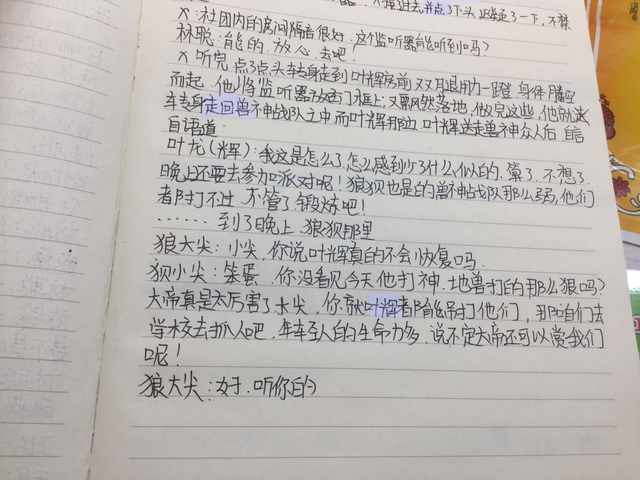 进去并点了下头
X:社团内的房间隔音很好,这个监听器能听到吗?
林聪:能的.放心.去吧.
X听完点点头转身走到叶辉房前双腿用力一蹬身体腾空
而起.他将监听器放到门框上;又飘然落地,做完这些,他就
转身走回兽神战队之中而叶辉那边,叶辉送走兽神众人后自言
自语道:
叶龙(辉):我这是怎么了怎么感到少了什么似的.算了.不想了.
晚上还要去参加派对呢!狼狈也是的兽神战队那么弱,他们
都打不过.不管了.锻炼吧!
……到了晚上.狼狈那里
狼大尖:小尖,你说叶辉真的不会恢复吗.
狈小尖:笨蛋,你没看见今天他打神.地兽打的那么狠吗?
大帝真是太厉害了大尖,你就叶辉都能吊打他们,那咱们去
学校去抓人吧,年轻人的生命力多,说不定大帝还可以赏我们
呢!
狼大尖:好.听你的